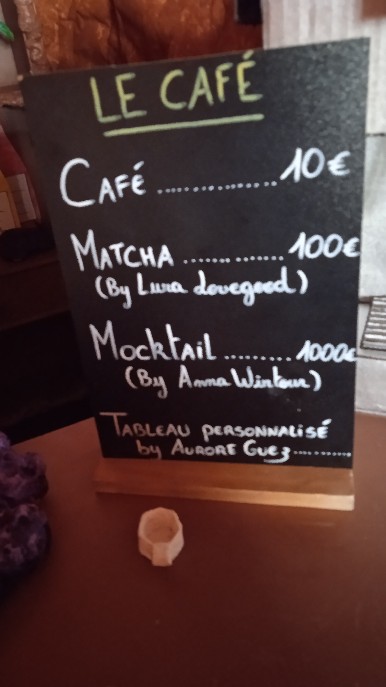 LE CAFÉ
CAFÉ ............... 10€
MATCHA ............. 100€
(By Luna Lovegood)
Mocktail ......... 1000€
(By Anna Wintour)
TABLEAU PERSONNALISÉ
by AURORE GUEZ .........